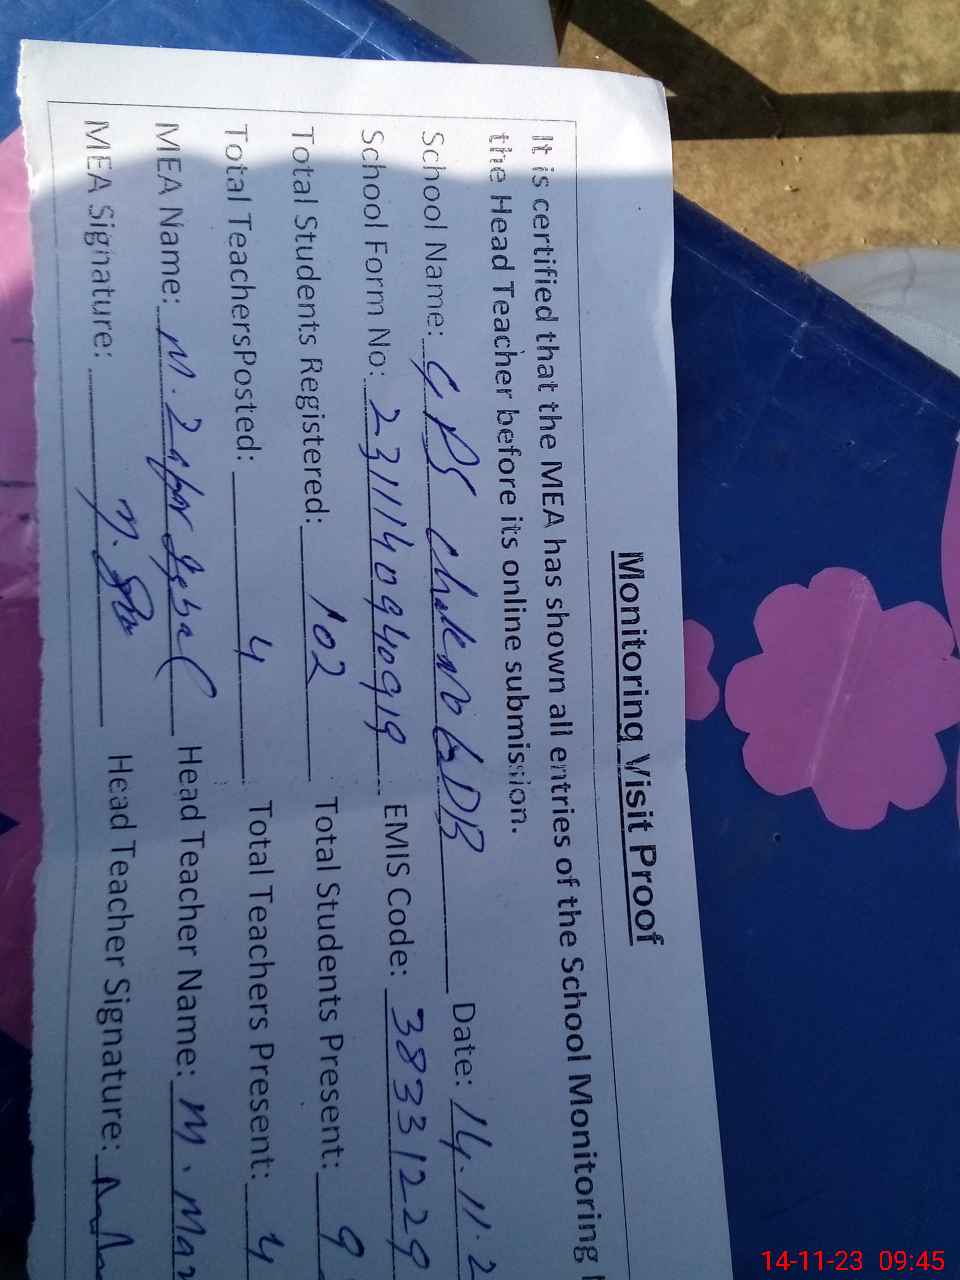 Monitoring Visit Proof
It is certified that the MEA has shown all entries of the School Monitoring
the Head Teacher before its online submission.
School Name: GPS Chak No 62DB Date: 14.11.2
School Form No: 2311140940919 EMIS Code: 38331229
Total Students Registered: 102 Total Students Present: 9
Total TeachersPosted: 4 Total Teachers Present: 4
MEA Name: M. Zafar Iqbal Head Teacher Name: M. Man
MEA Signature: Head Teacher Signature:
14-11-23 09:45